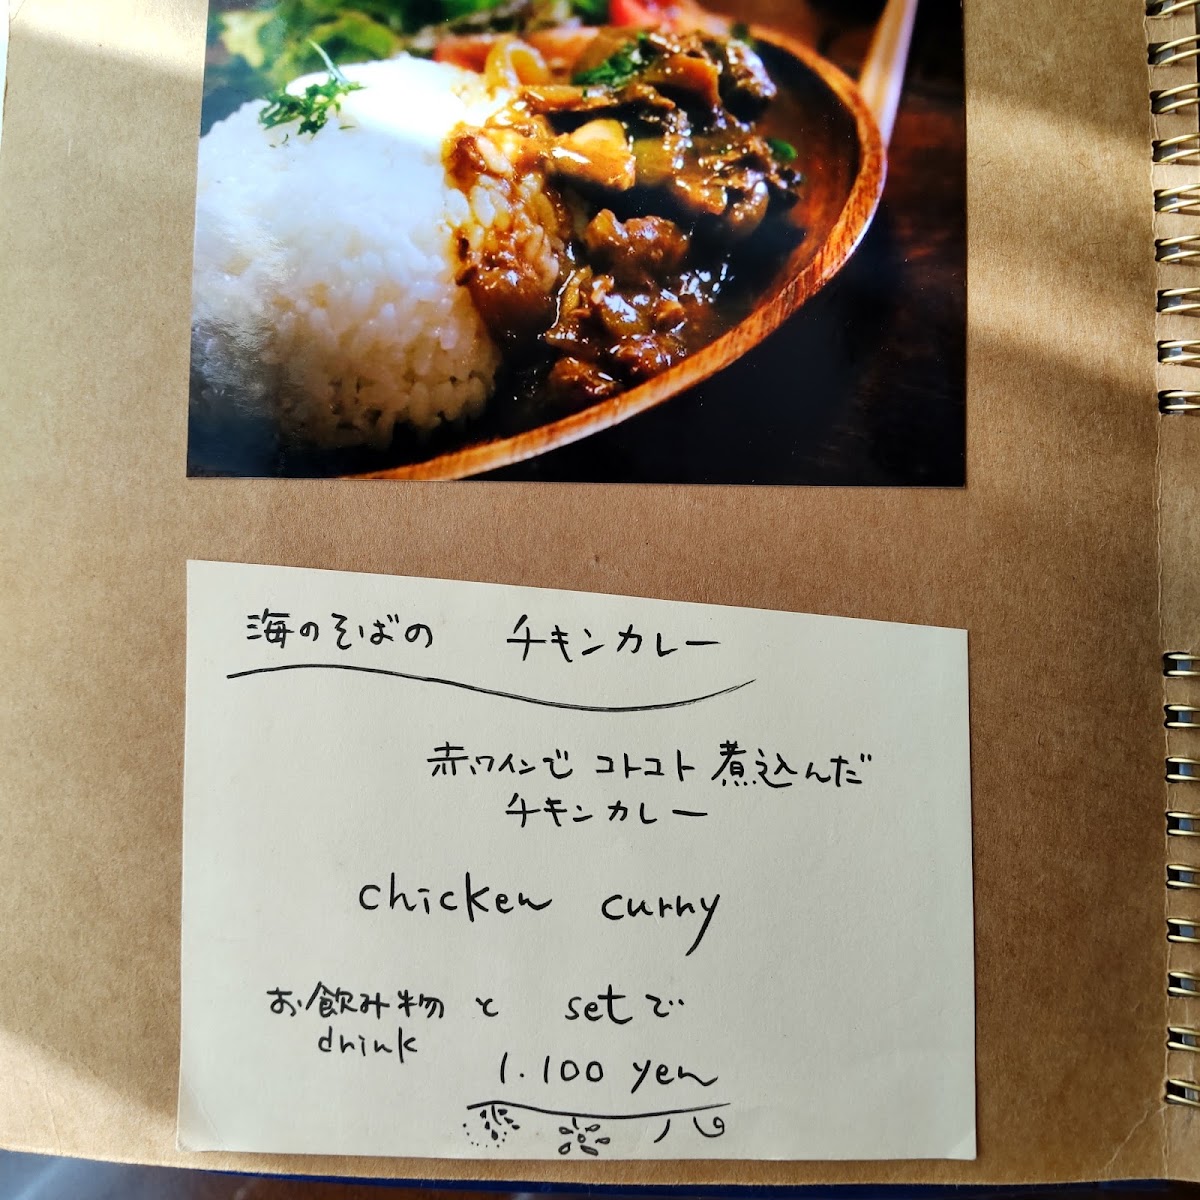 海のそばの チキンカレー
赤ワインで コトコト 煮込んだ
チキンカレー
chicken curry
お飲み物と setで
drink
1.100 yen